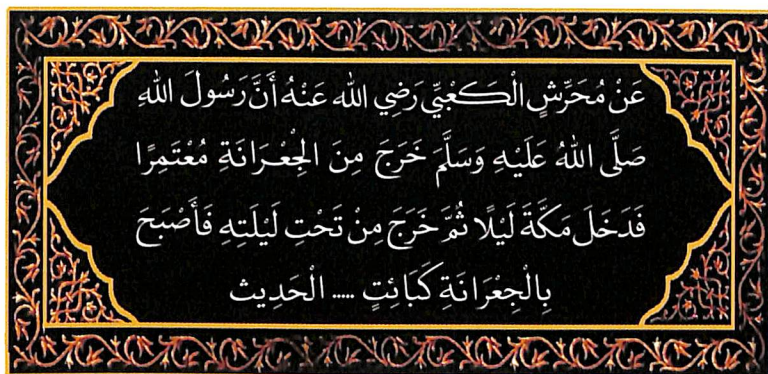 عَنْ مُحَرِّشٍ الْكَعْبِيِّ رَضِي الله عَنْهُ أَنَّ رَسُولَ اللهِ
صَلَّى اللهُ عَلَيْهِ وَسَلَّمَ خَرَجَ مِنَ الْجِعْرَانَةِ مُعْتَمِرًا
فَدَخَلَ مَكَّةَ لَيْلًا ثُمَّ خَرَجَ مِنْ تَحْتِ لَيْلَتِهِ فَأَصْبَحَ
بِالْجِعْرَانَةِ كَبَائِتٍ ..... الْحَدِيث